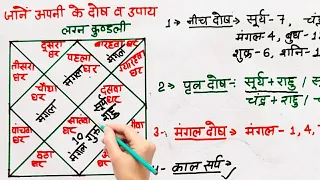 जानें अपनी के दोष व उपाय
लग्न कुण्डली
दूसरा घर
बारहवा घर
तीसरा घर
पहला घर
मंगल
ग्यारहवा घर
मंगल
दसवा घर
सूर्य
राहु
पांचवा घर
सातवा घर
मंगल
शुक्र
10
छठा घर
1) नीच दोष:- सूर्य-7, चंद्र
मंगल-4, बुध-12
शुक्र-6, शनि-1
2- सूर्य+राहु
चंद्र+राहु
3- मंगल दोष- मंगल-1, 4,
4- काल सर्प